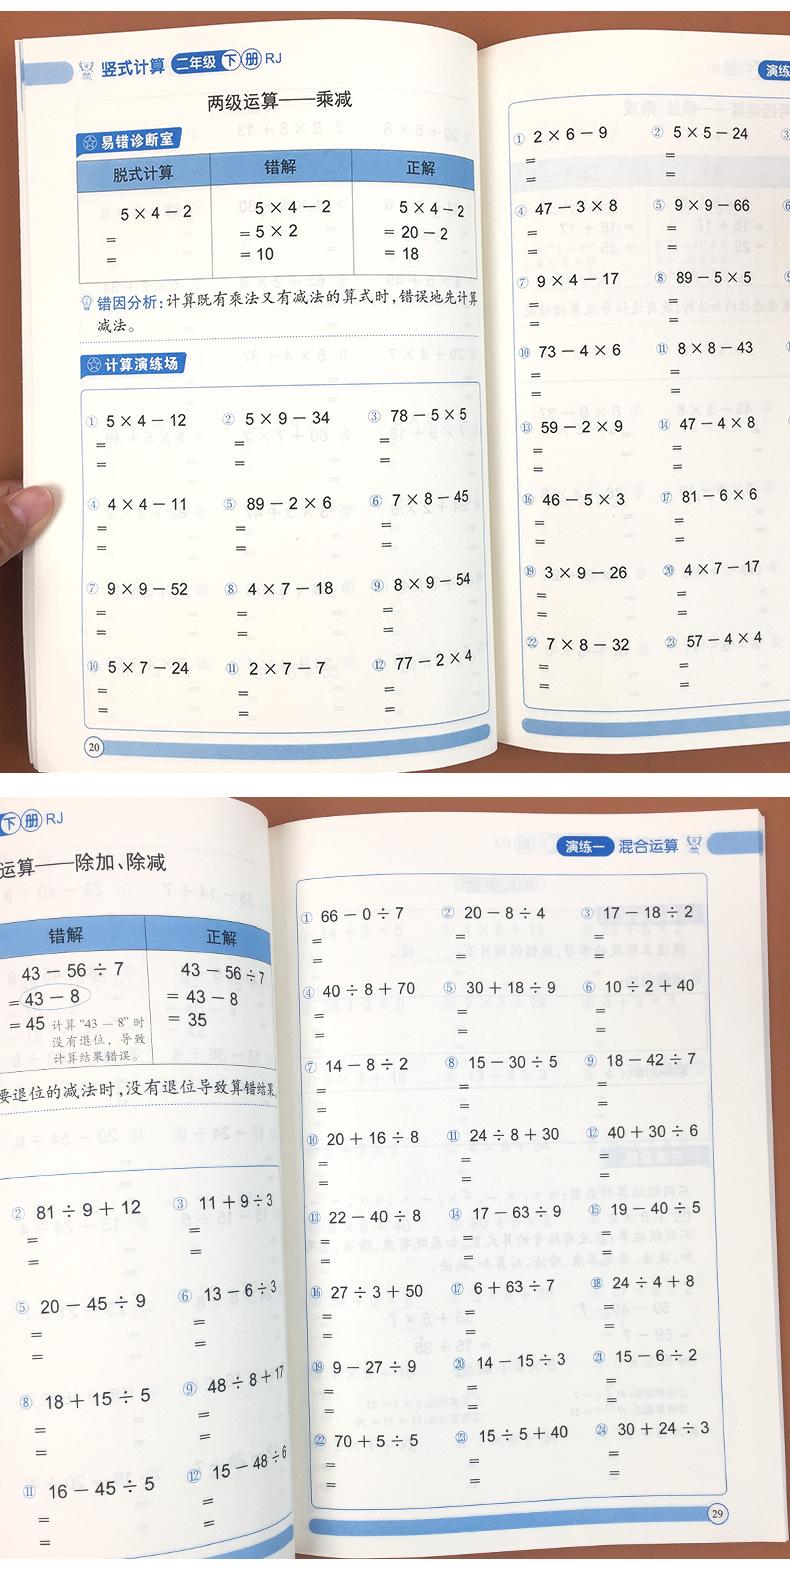 竖式计算 二年级 下 册 RJ
两级运算——乘减
易错诊断室
脱式计算 错解 正解
5×4－2 5×4－2 5×4－2
= ＝5×2 ＝20－2
= ＝10 ＝18
错因分析：计算既有乘法又有减法的算式时，错误地先计算
减法。
计算演练场
① 5×4－12 ② 5×9－34 ③ 78－5×5
= = =
= = =
④ 4×4－11 ⑤ 89－2×6 ⑥ 7×8－45
= = =
= = =
⑦ 9×9－52 ⑧ 4×7－18 ⑨ 8×9－54
= = =
= = =
⑩ 5×7－24 ⑪ 2×7－7 ⑫ 77－2×4
= = =
= = =
20
演练
① 2×6－9 ② 5×5－24
= =
= =
④ 47－3×8 ⑤ 9×9－66
= =
= =
⑦ 9×4－17 ⑧ 89－5×5
= =
= =
⑩ 73－4×6 ⑪ 8×8－43
= =
= =
⑬ 59－2×9 ⑭ 47－4×8
= =
= =
⑯ 46－5×3 ⑰ 81－6×6
= =
= =
⑲ 3×9－26 ⑳ 4×7－17
= =
= =
㉒ 7×8－32 ㉓ 57－4×4
= =
= =
下 册 RJ
运算——除加、除减
错解 正解
43－56÷7 43－56÷7
＝43－8 ＝43－8
＝45 计算“43－8”时 ＝35
没有退位，导致
计算结果错误。
要退位的减法时，没有退位导致算错结果。
② 81÷9＋12 ③ 11＋9÷3
= =
= =
⑤ 20－45÷9 ⑥ 13－6÷3
= =
= =
⑧ 18＋15÷5 ⑨ 48÷8＋17
= =
= =
⑪ 16－45÷5 ⑫ 15－48÷6
= =
= =
演练一 混合运算
① 66－0÷7 ② 20－8÷4 ③ 17－18÷2
= = =
= = =
④ 40÷8＋70 ⑤ 30＋18÷9 ⑥ 10÷2＋40
= = =
= = =
⑦ 14－8÷2 ⑧ 15－30÷5 ⑨ 18－42÷7
= = =
= = =
⑩ 20＋16÷8 ⑪ 24÷8＋30 ⑫ 40＋30÷6
= = =
= = =
⑬ 22－40÷8 ⑭ 17－63÷9 ⑮ 19－40÷5
= = =
= = =
⑯ 27÷3＋50 ⑰ 6＋63÷7 ⑱ 24÷4＋8
= = =
= = =
⑲ 9－27÷9 ⑳ 14－15÷3 ㉑ 15－6÷2
= = =
= = =
㉒ 70＋5÷5 ㉓ 15÷5＋40 ㉔ 30＋24÷3
= = =
= = =
29